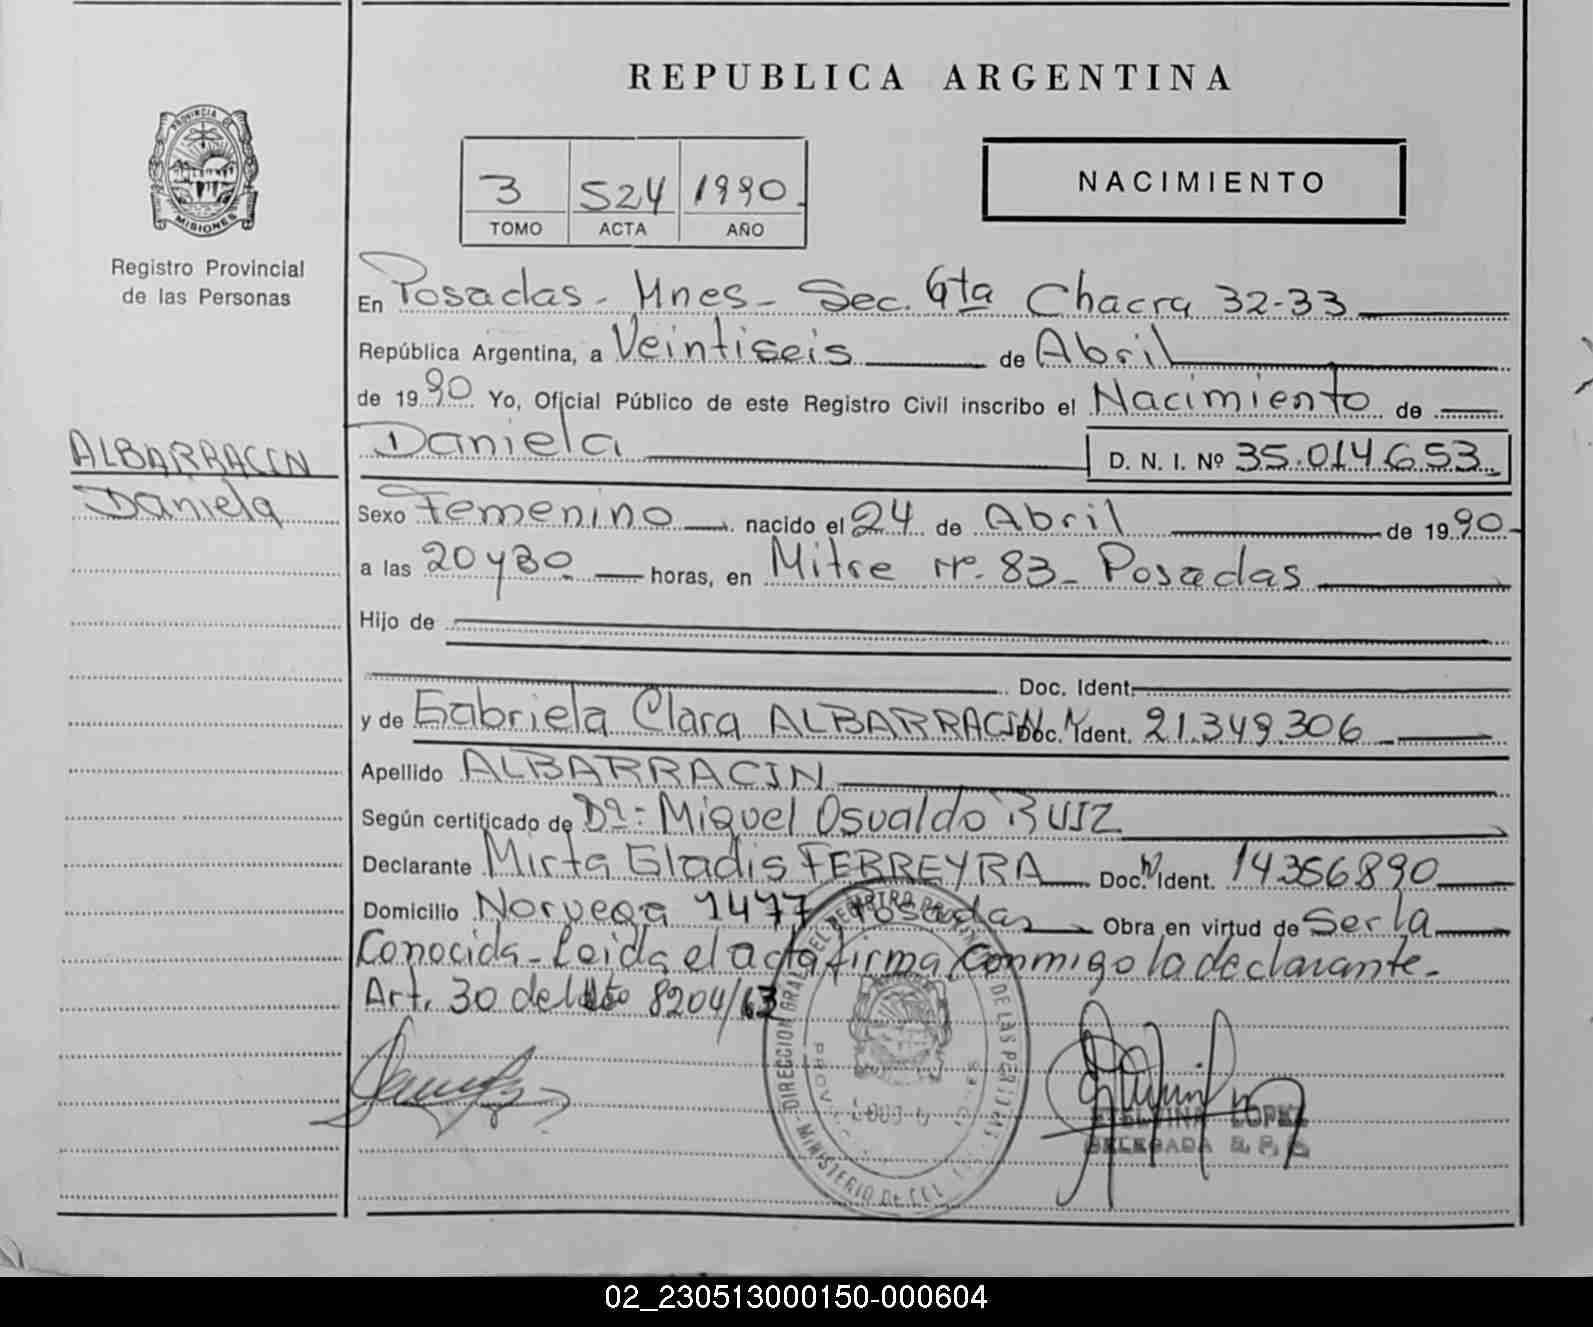 REPUBLICA ARGENTINA
PROVINCIA DE
MISIONES
Registro Provincial
de las Personas
3 524 1990
TOMO ACTA AÑO
NACIMIENTO
En Posadas - Mnes - Sec. 6ta Chacra 32-33
República Argentina, a Veintiseis de Abril
de 1990 Yo, Oficial Público de este Registro Civil inscribo el Nacimiento de
Daniela D. N. I. Nº 35.014.653
ALBARRACIN
Daniela
Sexo Femenino nacido el 24 de Abril de 1990
a las 20 y 30 horas, en Mitre nº. 83 - Posadas
Hijo de
Doc. Ident.
y de Gabriela Clara ALBARRACIN Doc. Ident. 21.349.306
Apellido ALBARRACIN
Según certificado de Dº: Miguel Osvaldo RUIZ
Declarante Mirta Gladis FERREYRA Doc. Nº Ident. 14356890
Domicilio Noruega 1477 Posadas Obra en virtud de Ser la
Conocida - Leida el acta firma conmigo la declarante -
Art. 30 del 8204/63
DIRECCION GRAL DEL REGISTRO PROVINCIAL DE LAS PERSONAS
MINISTERIO DE
ETELVINA LOPEZ
DELEGADA
02_230513000150-000604